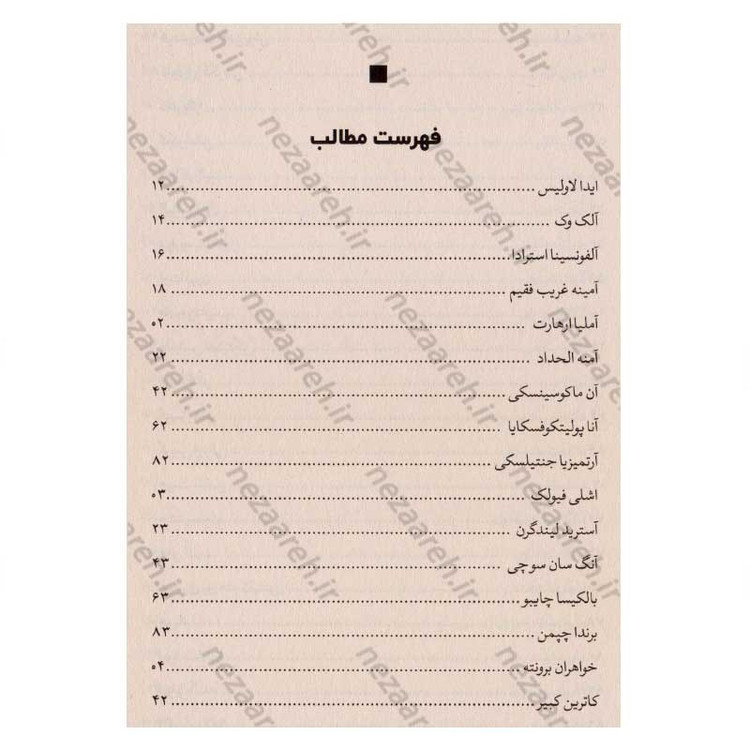 فهرست مطالب
ایدا لاولیس ........ ۱۲
آلک وک ........ ۱۴
آلفونسینا استرادا ........ ۱۶
آمینه غریب فقیم ........ ۱۸
آملیا ارهارت ........ ۰۲
آمنه الحداد ........ ۲۲
آن ماکوسینسکی ........ ۴۲
آنا پولیتکوفسکایا ........ ۶۲
آرتمیزیا جنتیلسکی ........ ۸۲
اشلی فیولک ........ ۰۳
آسترید لیندگرن ........ ۲۳
آنگ سان سوچی ........ ۴۳
بالکیسا چایبو ........ ۶۳
برندا چپمن ........ ۸۳
خواهران برونته ........ ۰۴
کاترین کبیر ........ ۴۲
nezaareh.ir